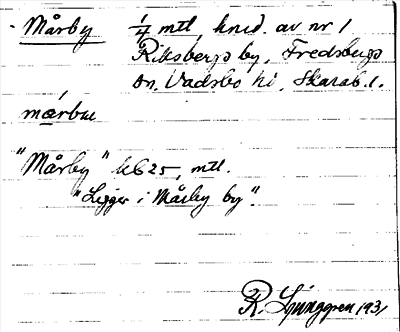 Mårby ¼ mtl, hmd. av nr 1
Riksberga by, Fredsberga
sn. Vadsbo hd, Skarab. l.
mårbu
"Mårby" hb 25, mtl.
"Ligger i Mårby by".
R. Ljunggren 1931